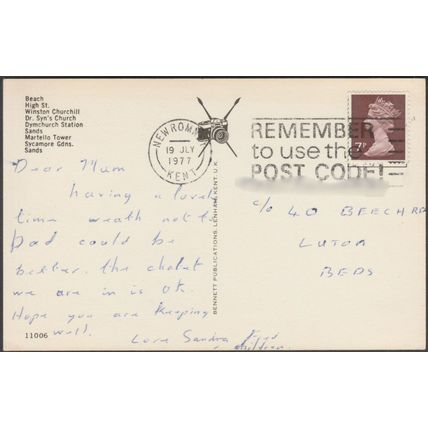 Beach
High St.
Winston Churchill
Dr. Syn's Church
Dymchurch Station
Sands
Martello Tower
Sycamore Gdns.
Sands
NEW ROMNEY
19 JLY
1977
KENT
REMEMBER
to use the
POST CODE!
7P
Dear Mum
having a lovely
time weath not to
bad could be
better. the chalet
we are in is ok.
Hope you are keeping
well.
Love Sandra
children
c/o 40 BEECH RD
LUTON
BEDS
BENNETT PUBLICATIONS, LENHAM, KENT. U.K.
11006